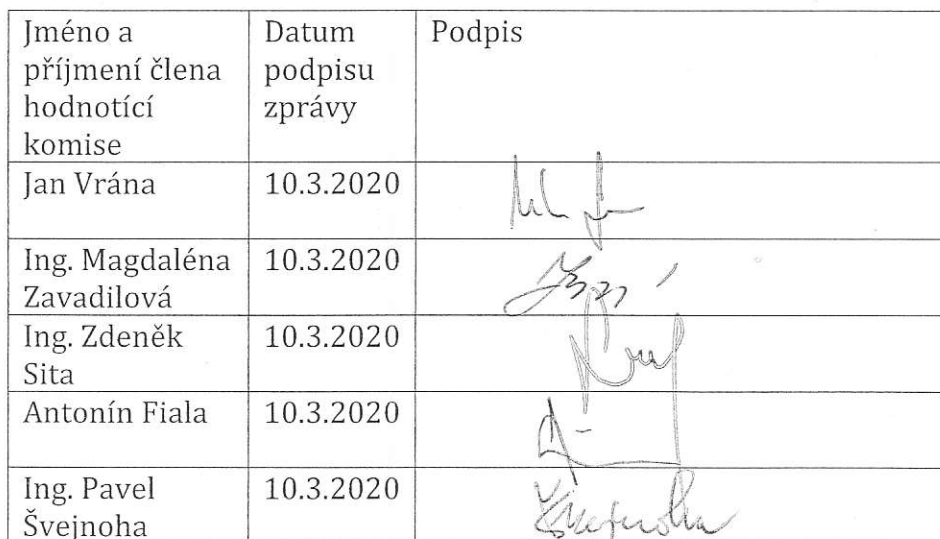 Jméno a příjmení člena hodnotící komise | Datum podpisu zprávy | Podpis
Jan Vrána | 10.3.2020
Ing. Magdaléna Zavadilová | 10.3.2020
Ing. Zdeněk Sita | 10.3.2020
Antonín Fiala | 10.3.2020
Ing. Pavel Švejnoha | 10.3.2020 | Švejnoha